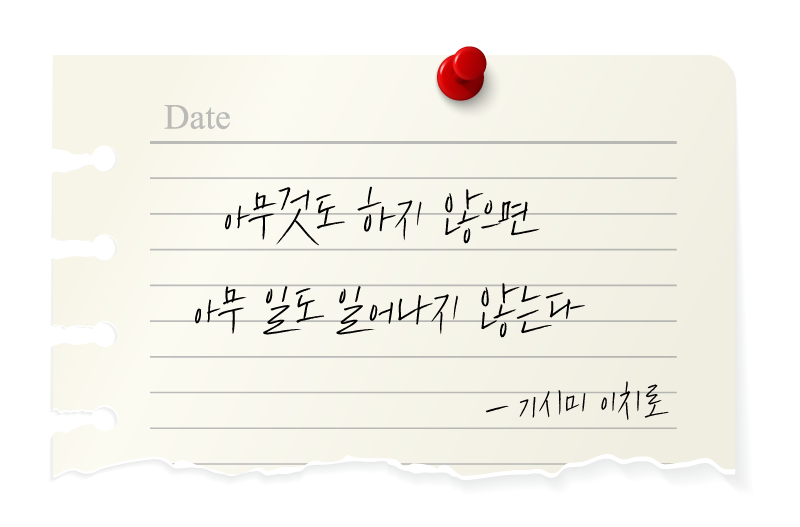 Date
아무것도 하지 않으면
아무 일도 일어나지 않는다
- 기시미 이치로